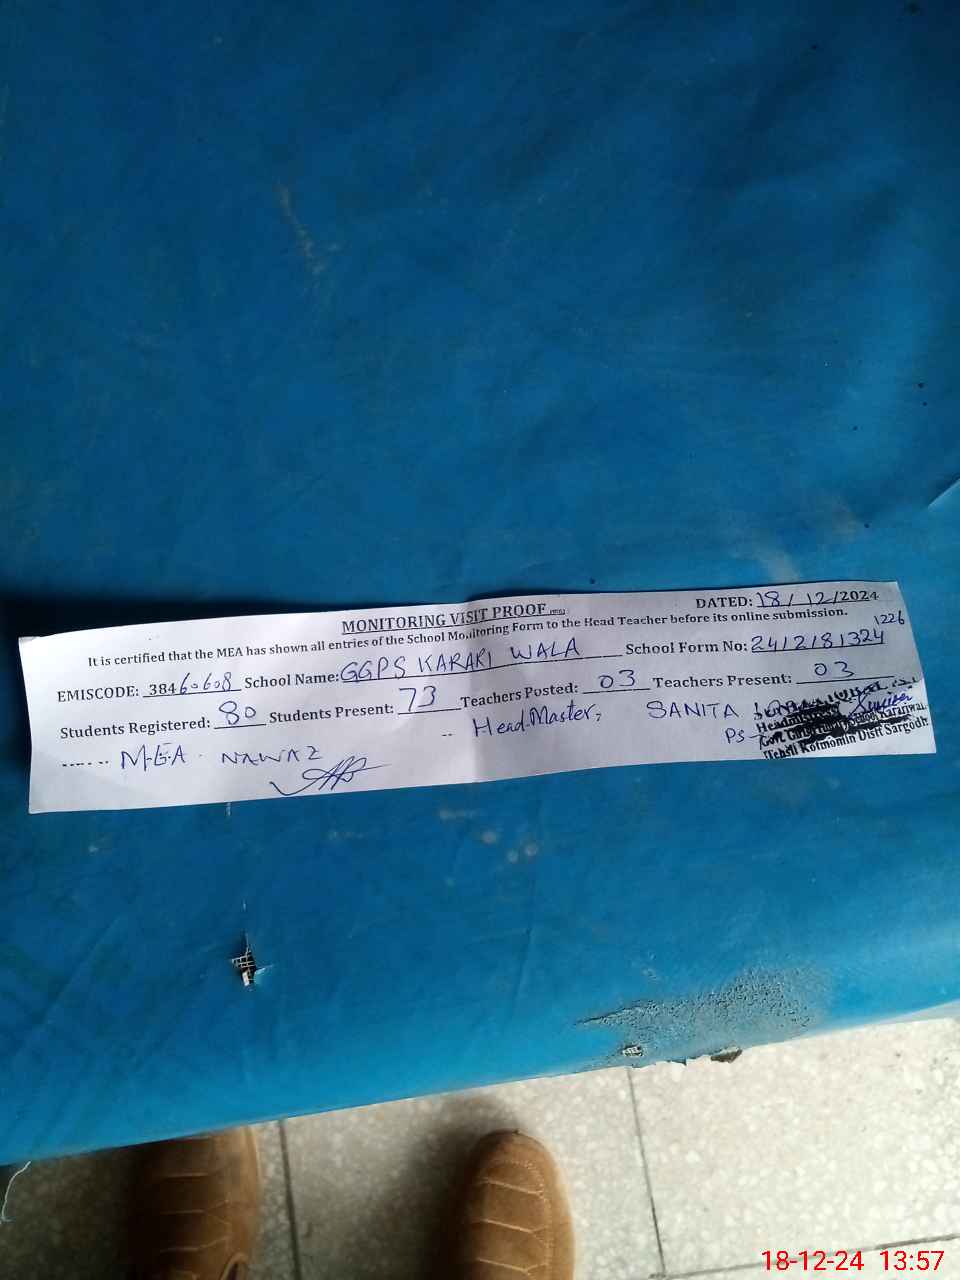 MONITORING VISIT PROOF
DATED: 18/12/2024
It is certified that the MEA has shown all entries of the School Monitoring Form to the Head Teacher before its online submission.
EMISCODE: 38460608 School Name: GGPS KARARI WALA School Form No: 2412181324 1226
Students Registered: 80 Students Present: 73 Teachers Posted: 03 Teachers Present: 03
M.E.A. NAWAZ Head Master; SANITA
Headmistress
Govt. Girls Primary School Karariwala
Tehsil Kotmomin Distt Sargodh
18-12-24 13:57